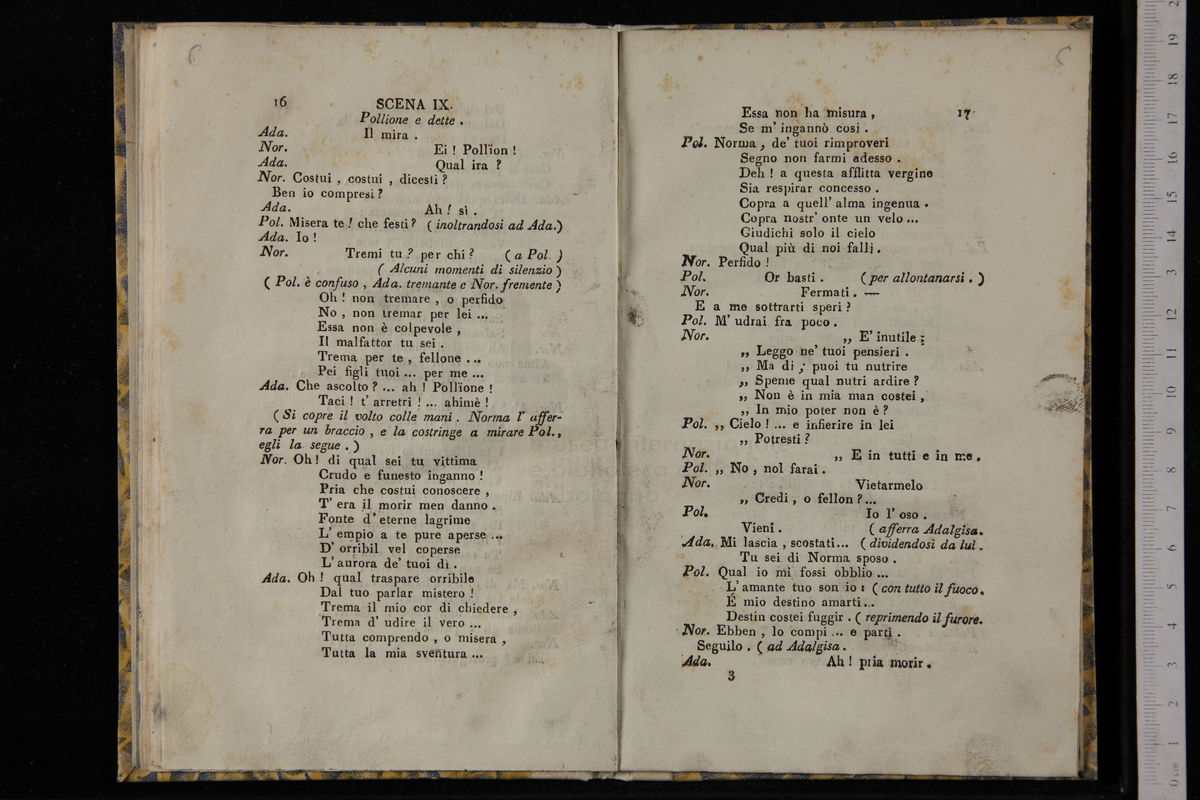 16
SCENA IX.
Pollione e dette .
Ada. Il mira .
Nor. Ei ! Pollïon !
Ada. Qual ira ?
Nor. Costui , costui , dicesti ?
Ben io compresi ?
Ada. Ah ! sì .
Pol. Misera te ! che festi ? ( inoltrandosi ad Ada.)
Ada. Io !
Nor. Tremi tu ? per chi ? ( a Pol. )
( Alcuni momenti di silenzio )
( Pol. è confuso , Ada. tremante e Nor. fremente )
Oh ! non tremare , o perfido
No , non tremar per lei ...
Essa non è colpevole ,
Il malfattor tu sei .
Trema per te , fellone ...
Pei figli tuoi ... per me ...
Ada. Che ascolto ? ... ah ! Pollïone !
Taci ! t' arretri ! ... ahimè !
( Si copre il volto colle mani . Norma l' affer-
ra per un braccio , e la costringe a mirare Pol.,
egli la segue . )
Nor. Oh ! di qual sei tu vittima
Crudo e funesto inganno !
Pria che costui conoscere ,
T' era il morir men danno .
Fonte d' eterne lagrime
L' empio a te pure aperse ...
D' orribil vel coperse
L' aurora de' tuoi dì .
Ada. Oh ! qual traspare orribile
Dal tuo parlar mistero !
Trema il mio cor di chiedere ,
Trema d' udire il vero ...
Tutta comprendo , o misera ,
Tutta la mia sventura ...
17
Essa non ha misura ,
Se m' ingannò così .
Pol. Norma , de' tuoi rimproveri
Segno non farmi adesso .
Deh ! a questa afflitta vergine
Sia respirar concesso .
Copra a quell' alma ingenua .
Copra nostr' onte un velo ...
Giudichi solo il cielo
Qual più di noi fallì .
Nor. Perfido !
Pol. Or basti . (per allontanarsi . )
Nor. Fermati . —
E a me sottrarti speri ?
Pol. M' udrai fra poco .
Nor. ,, E' inutile :
,, Leggo ne' tuoi pensieri .
,, Ma di ; puoi tu nutrire
,, Speme qual nutri ardire ?
,, Non è in mia man costei ,
,, In mio poter non è ?
Pol. ,, Cielo ! ... e infierire in lei
,, Potresti ?
Nor. ,, E in tutti e in me .
Pol. ,, No , nol farai .
Nor. Vietarmelo
,, Credi , o fellon ? ...
Pol. Io l' oso .
Vieni . ( afferra Adalgisa.
Ada. Mi lascia , scostati... ( dividendosi da lui .
Tu sei di Norma sposo .
Pol. Qual io mi fossi obblio ...
L' amante tuo son io : ( con tutto il fuoco.
É mio destino amarti...
Destin costei fuggir . ( reprimendo il furore.
Nor. Ebben , lo compi ... e parti .
Seguilo . ( ad Adalgisa .
Ada. Ah ! pria morir .
3